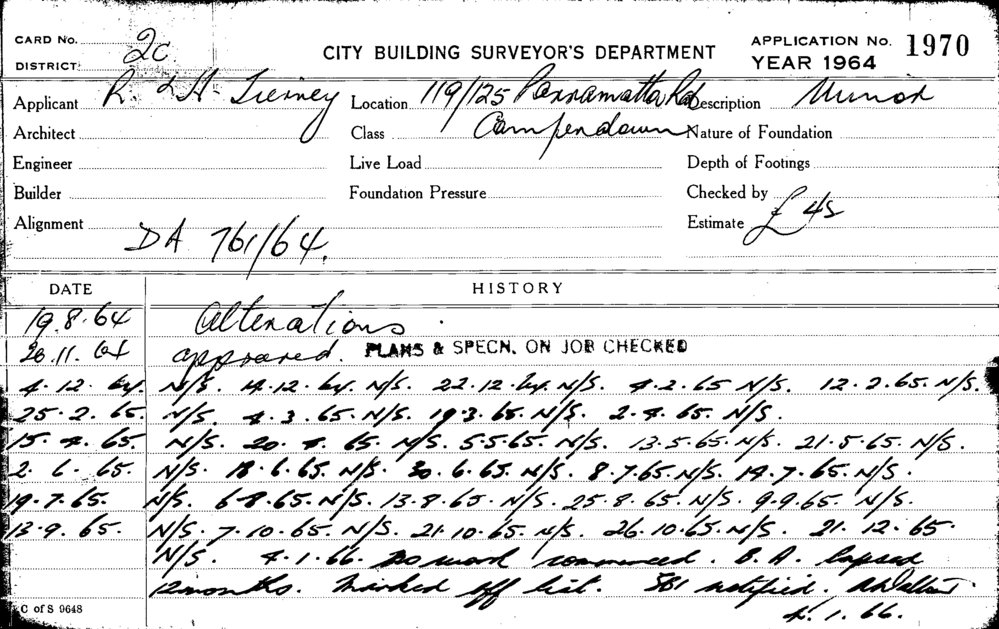 CARD No. 2c CITY BUILDING SURVEYOR'S DEPARTMENT APPLICATION No. 1970
DISTRICT: YEAR 1964
Applicant R. & H. Tierney Location 119/125 Parramatta Rd Description Minor
Architect Class Camperdown Nature of Foundation
Engineer Live Load Depth of Footings
Builder Foundation Pressure Checked by
Alignment DA 761/64. Estimate £45
DATE HISTORY
19.8.64 Alterations.
26.11.64 approved. PLANS & SPECN. ON JOB CHECKED
4.12.64. N/S. 14.12.64. N/S. 22.12.64. N/S. 4.2.65 N/S. 12.2.65. N/S.
25.2.65. N/S. 4.3.65. N/S. 19.3.65. N/S. 2.4.65. N/S.
15.4.65 N/S. 20.4.65. N/S. 5.5.65. N/S. 13.5.65. N/S. 21.5.65. N/S.
2.6.65. N/S. 18.6.65. N/S. 30.6.65. N/S. 8.7.65. N/S. 14.7.65. N/S.
19.7.65. N/S. 6.8.65. N/S. 13.8.65. N/S. 25.8.65. N/S. 9.9.65. N/S.
13.9.65. N/S. 7.10.65. N/S. 21.10.65. N/S. 26.10.65. N/S. 21.12.65.
N/S. 4.1.66. No work commenced. B.A. lapsed
12 months. Marked off list. SBI notified.
4.1.66.
C of S 9648